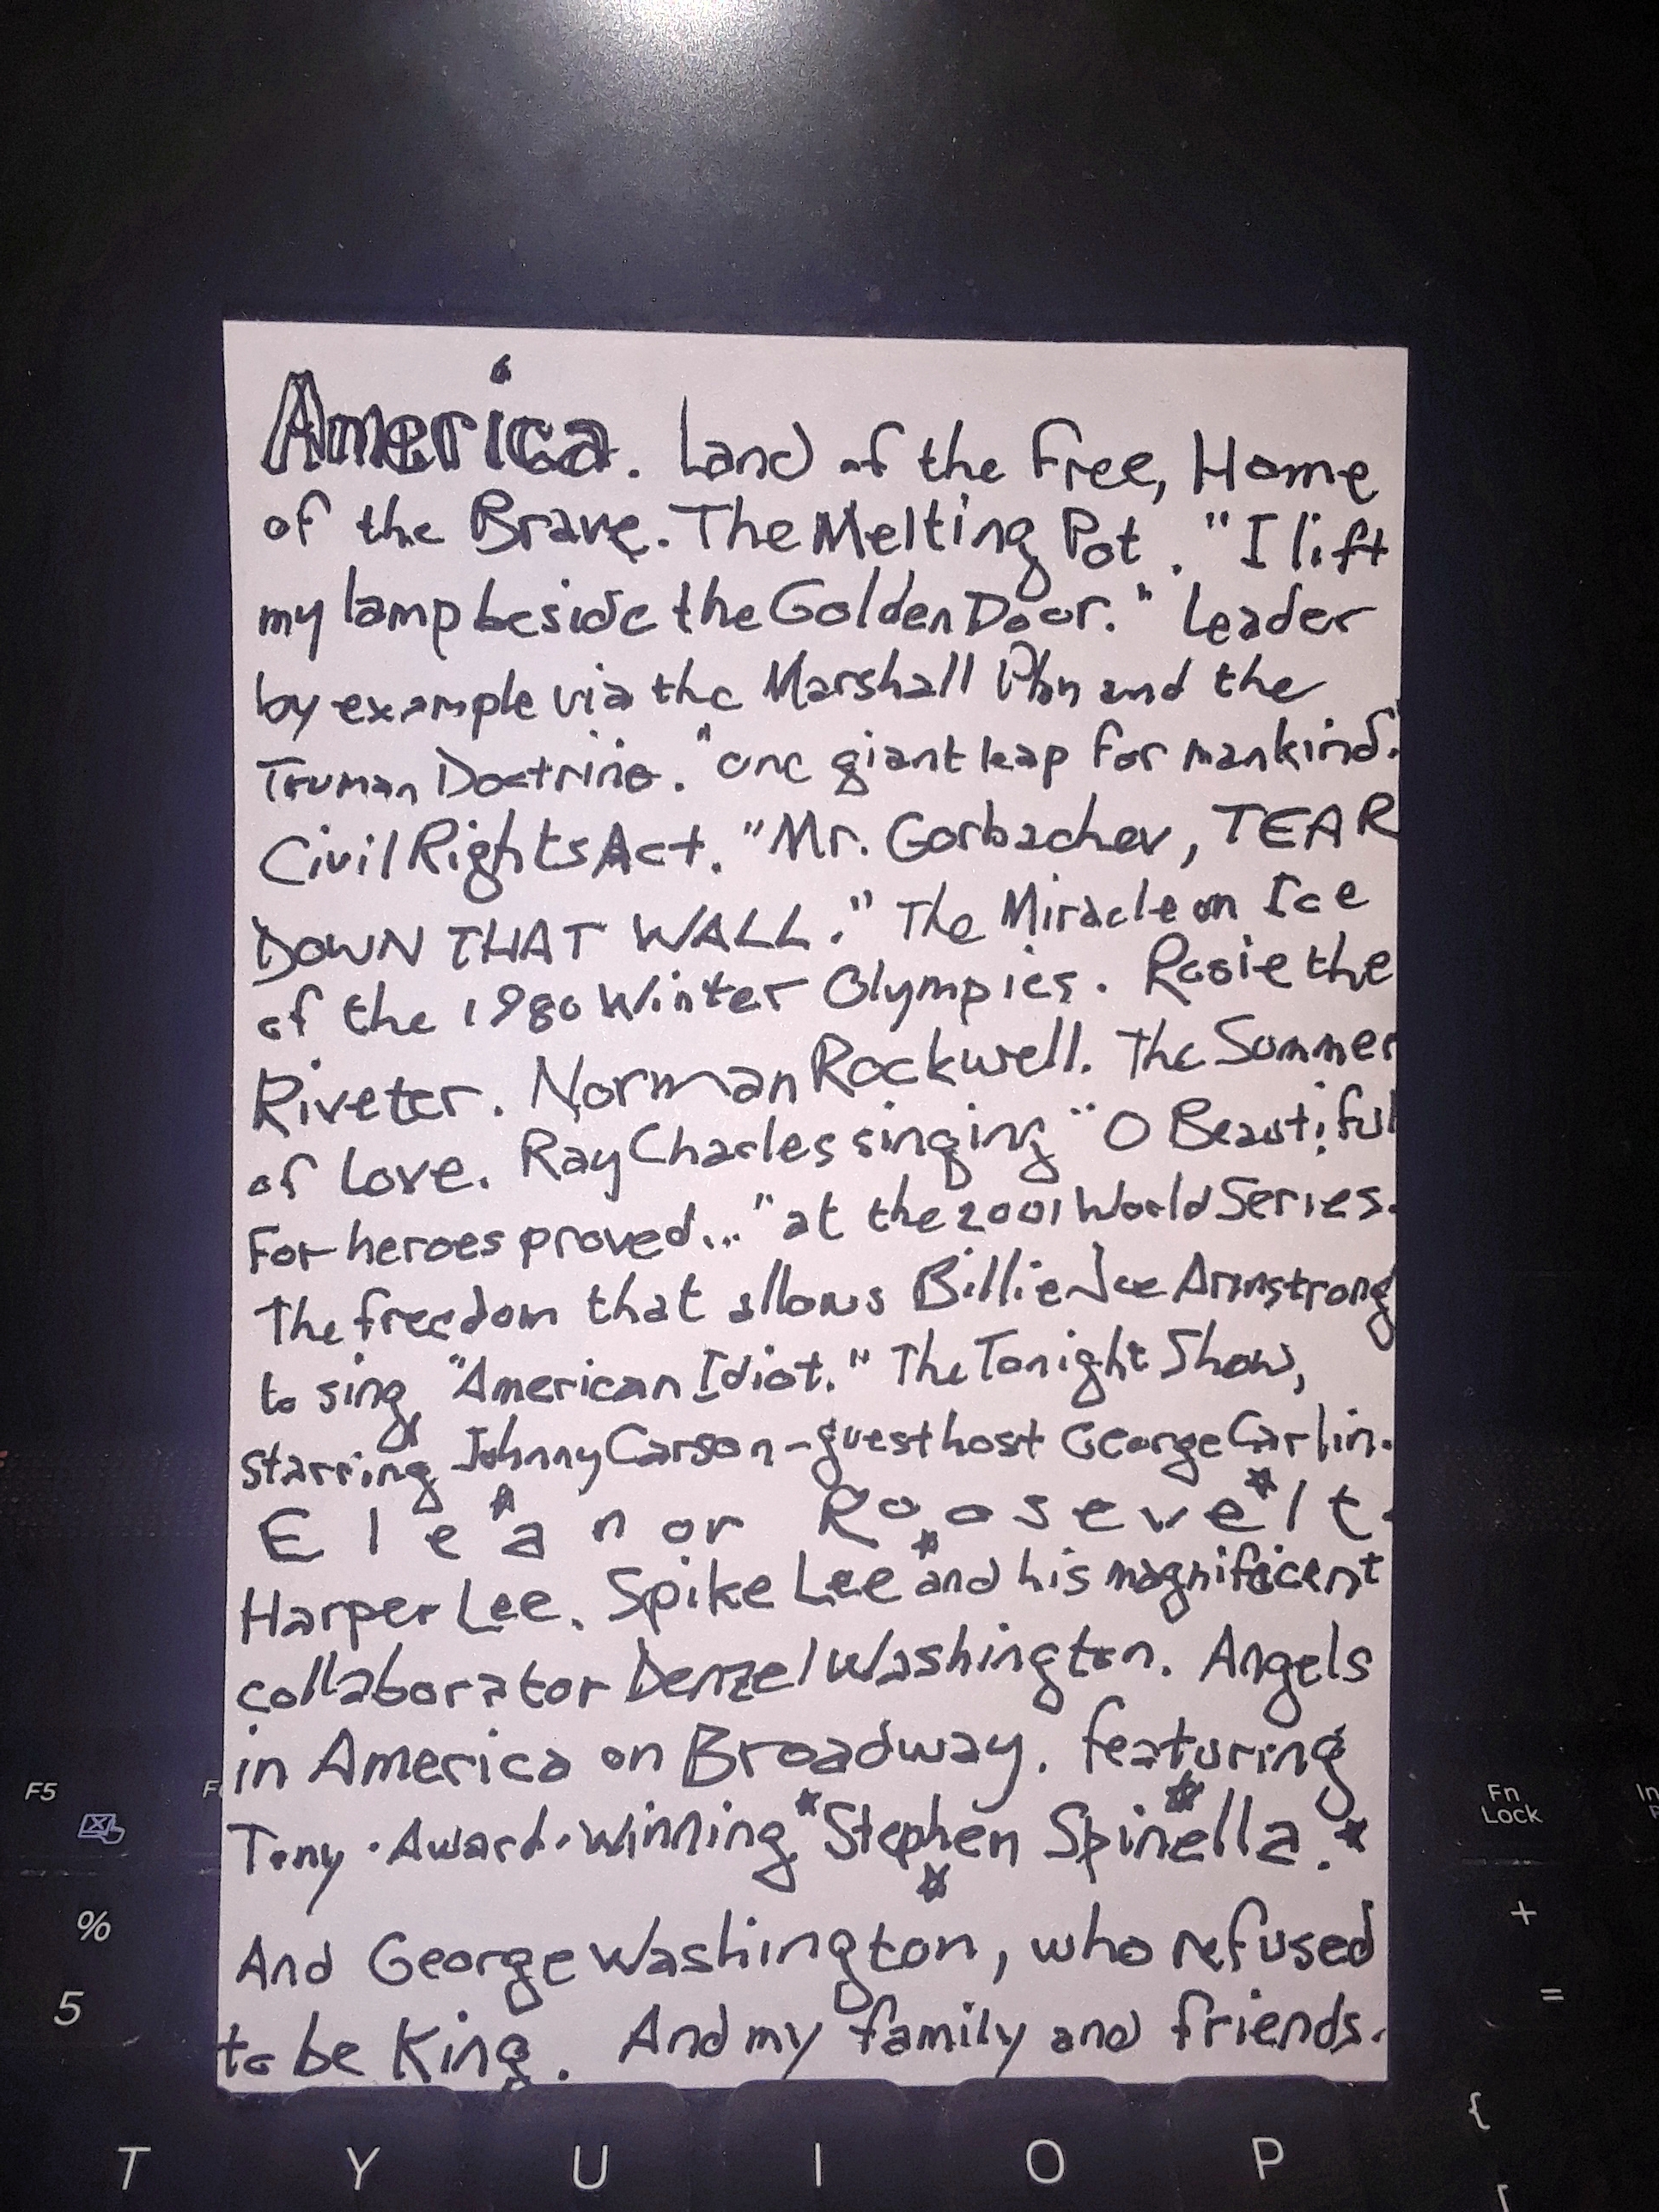 America. Land of the Free, Home
of the Brave. The Melting Pot. "I lift
my lamp beside the Golden Door." Leader
by example via the Marshall Plan and the
Truman Doctrine. "One giant leap for mankind."
Civil Rights Act. "Mr. Gorbachev, TEAR
DOWN THAT WALL." The Miracle on Ice
of the 1980 Winter Olympics. Rosie the
Riveter. Norman Rockwell. The Summer
of Love. Ray Charles singing "O Beautiful
For heroes proved..." at the 2001 World Series.
The freedom that allows Billie Joe Armstrong
to sing "American Idiot." The Tonight Show,
starring Johnny Carson - guest host George Carlin.
Eleanor Roosevelt.
Harper Lee. Spike Lee and his magnificent
collaborator Denzel Washington. Angels
in America on Broadway. featuring
Tony-Award-winning Stephen Spinella.
And George Washington, who refused
to be King. And my family and friends.
F5
F
Fn
Lock
In
%
5
+
=
T Y U I O P
{
[